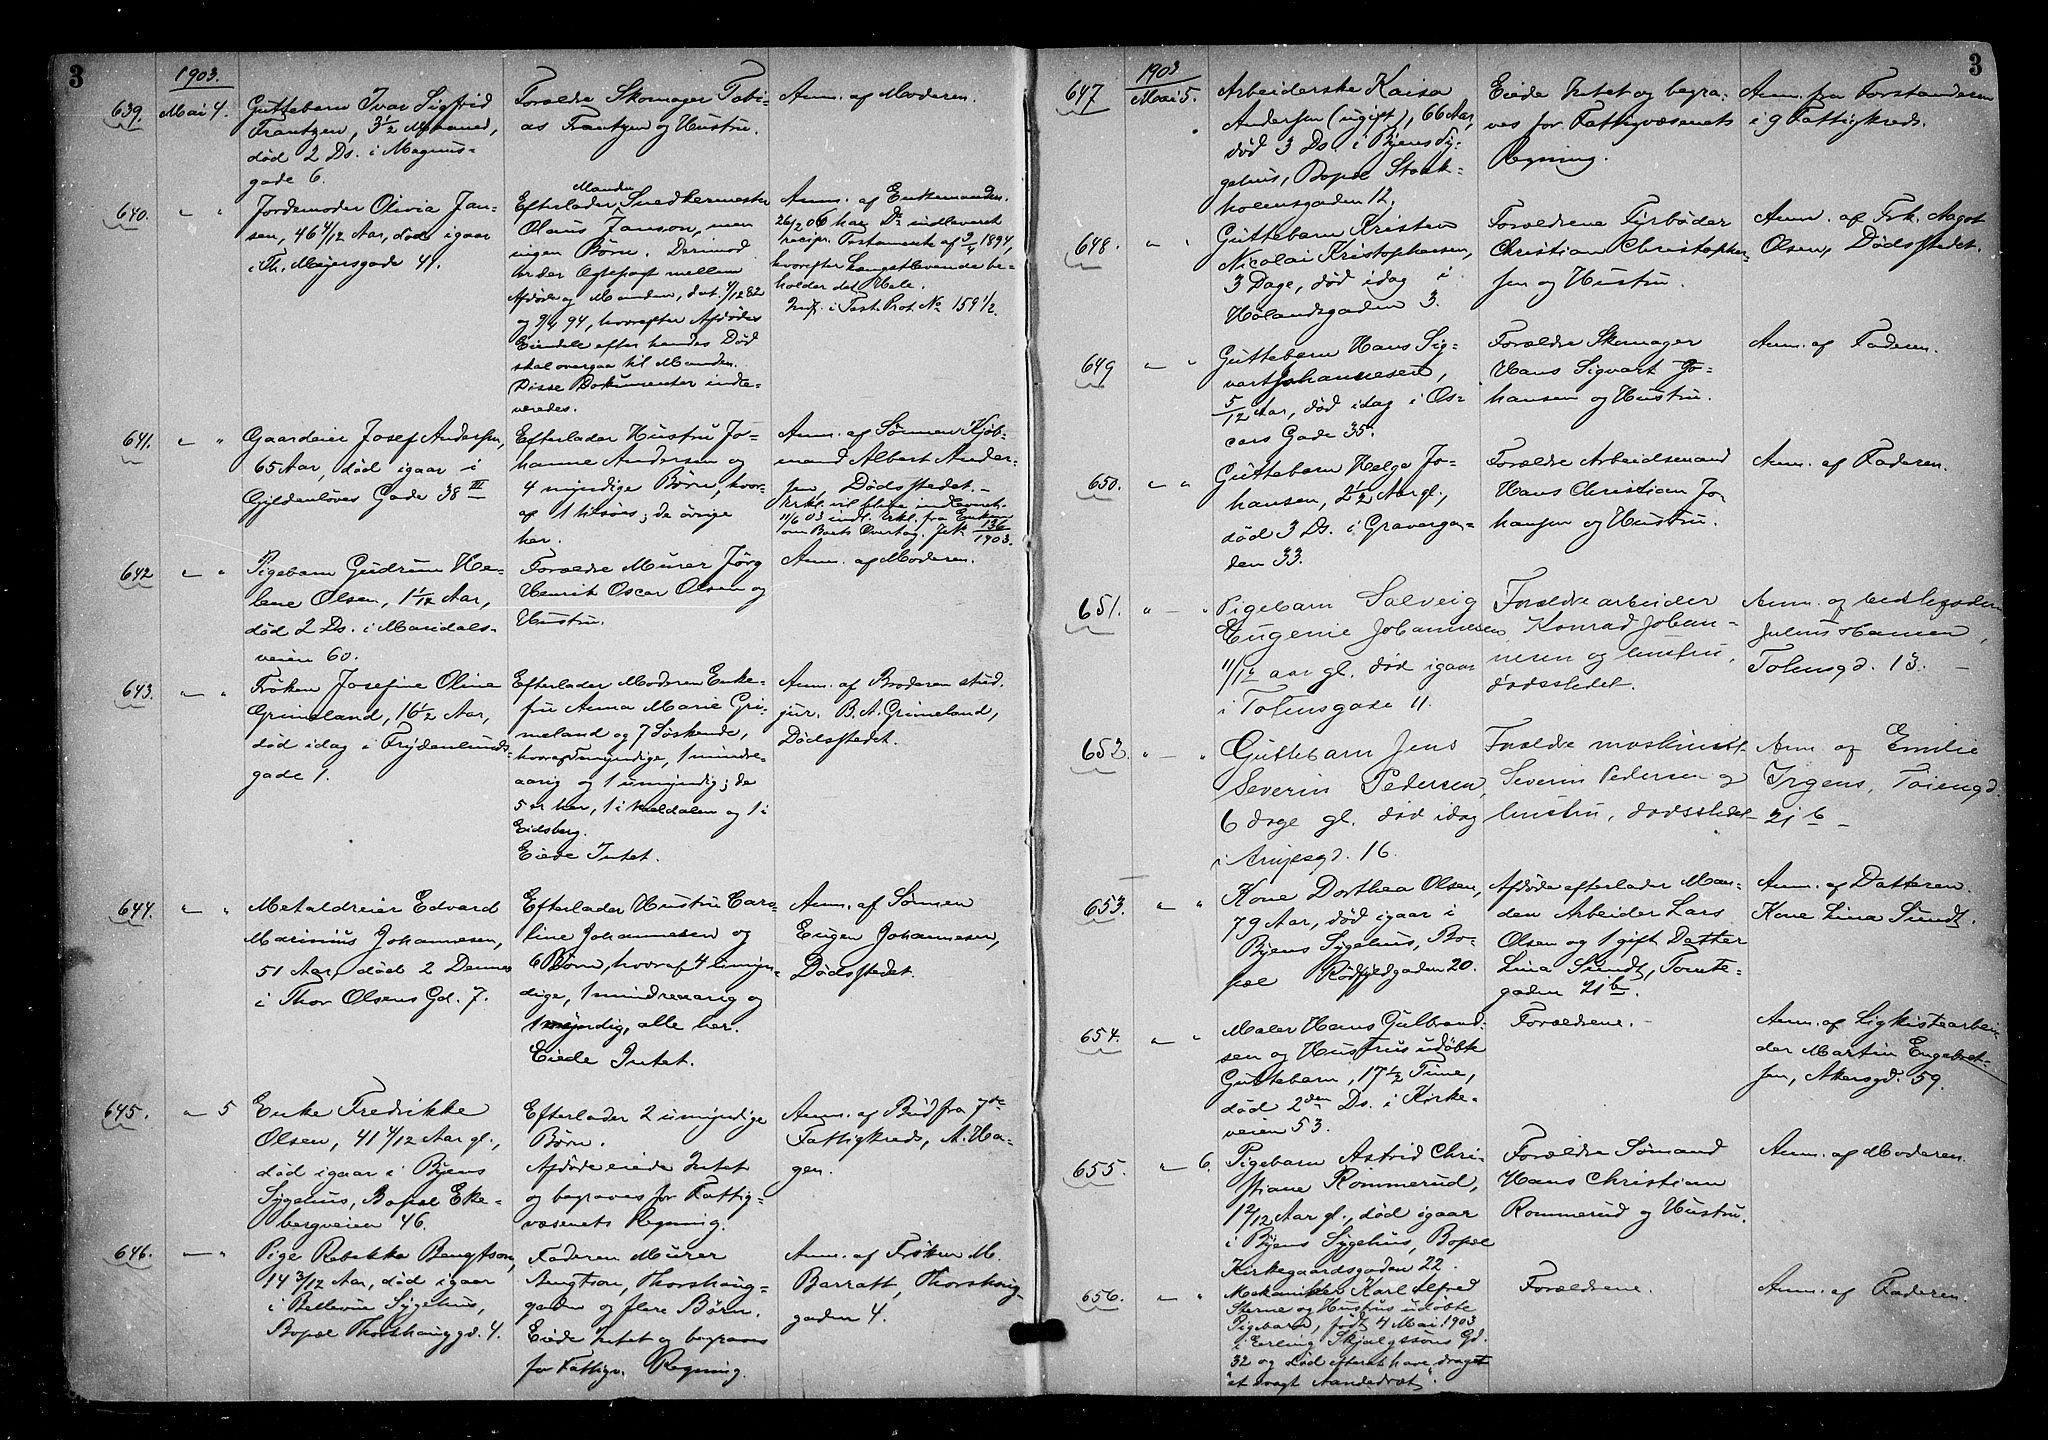 3
1903.
639. Mai 4.
Guttebarn Ivar Sigfrid
Frantzen, 3 1/2 Maaned,
død 2 Ds. i Magnus-
gade 6.
Forældre Skomager Tobi-
as Frantzen og Hustru.
Anm. af Moderen.
640. " "
Jordemoder Olivia Jan-
sen, 46 4/12 Aar, død igaar
i Th. Meyersgade 41.
Efterlader Manden Snedkermester
Olaus Janson, men
ingen Børn. Derimod
er der Ægtepagt mellem
Afdøde og Manden, dat. 4/12 82
og 9/4 94, hvorefter Afdødes
Eiendele efter hendes Død
skal overgaa til Manden.
Disse Dokumenter indle-
veredes.
Anm. af Enkemanden.
26/2 06 har Ds indleveret
recipr. Testamente af 9/4 1894,
hvorefter Længstlevende be-
holder det Hele.
Indf. i Test. Prot. No 159 1/2.
641. " "
Gaardeier Josef Andersen,
65 Aar, død igaar i
Gyldenløves Gade 38 III
Efterlader Hustru Jo-
hanne Andersen og
4 myndige Børn, hvor-
af 1 tilsøes; de øvrige
her.
Anm. af Sønnen Kjøb-
mand Albert Ander-
sen, Dødsstedet. -
Erkl. vil blive indleveret.
11/6 03 indl. Erkl. fra Enken
om Boets Overtag. Jr. 136/1903.
642 " "
Pigebarn Gudrun He-
lene Olsen, 1 1/12 Aar,
død 2 Ds. i Maridals-
veien 60.
Forældre Murer Jørg
Henrik Oscar Olsen og
Hustru.
Anm. af Moderen.
643. " "
Frøken Josefine Oline
Grimeland, 16 1/2 Aar,
død idag i Frydenlunds-
gade 1.
Efterlader Moderen Enke-
fru Anna Marie Gri-
meland og 7 Søskende,
hvoraf 5 myndige, 1 mindre-
aarig og 1 umyndig; de
5 er her, 1 i Mældalen og 1 i
Eidsberg.
Eiede Intet.
Anm. af Broderen stud.
jur. B. A. Grimeland,
Dødsstedet.
644. " "
Metaldreier Edvard
Marinius Johannesen,
51 Aar, død 2 Dennes
i Thor Olsens Gd. 7.
Efterlader Hustru Caro-
line Johannesen og
6 Børn, hvoraf 4 umyn-
dige, 1 mindreaarig og
1 myndig, alle her.
Eiede Intet.
Anm. af Sønnen
Eugen Johannesen,
Dødsstedet.
645. " 5
Enke Fredrikke
Olsen, 41 4/12 Aar gl.,
død igaar i Byens
Sygehus, Bopæl Eke-
bergveien 46.
Efterlader 2 umyndige
Børn.
Afdøde eiede Intet
og begraves for Fattig-
væsenets Regning.
Anm. af Bud fra 7de
Fattigkreds, A. Ha-
gen.
646. " "
Pige Rebekka Bengtson,
14 3/12 Aar, død igaar
i Bellevue Sygehus,
Bopæl Thorshauggd. 4.
Faderen Murer
Bengtson, Thorshaug-
gaden og flere Børn.
Eiede Intet og begraves
for Fattigv. Regning.
Anm. af Frøken M.
Barratt, Thorshaug-
gaden 4.
3
1903
647 Mai 5.
Arbeiderske Kaisa
Andersen (ugift), 66 Aar,
død 3 Ds. i Byens Sy-
gehus, Bopæl Stok-
holmsgaden 12.
Eiede Intet og begra-
ves for Fattigvæsenets
Regning.
Anm. fra Forstanderen
i 9 Fattigkreds.
648. " "
Guttebarn Kristen
Nicolai Kristophersen,
3 Dage, død idag i
Hølandsgaden 3.
Forældrene Fyrbøder
Christian Christopher-
sen og Hustru.
Anm. af Frk. Aagot
Olsen, Dødsstedet.
649 " "
Guttebarn Hans Sig-
vart Johannesen,
5/12 Aar, død idag i Os-
cars Gade 35.
Forældre Skomager
Hans Sigvart Jo-
hansen og Hustru.
Anm. af Faderen.
650. " "
Guttebarn Helge Jo-
hansen, 2 1/2 Aar gl.,
død 3 Ds. i Gravergа-
den 33.
Forældre Arbeidsmand
Hans Christian Jo-
hansen og Hustru.
Anm. af Faderen.
651. " "
Pigebarn Solveig
Eugenie Johannesen,
11/12 aar gl. død igaar
i Tøiensgade 11.
Forældre arbeider
Konrad Johan-
nesen og hustru,
dødsstedet.
Anm. af
Julius Hansen,
Tøiensgd. 13. -
652. " "
Guttebarn Jens
Severin Pedersen,
6 dage gl. død idag
i Amjesgd. 16.
Forældre maskinist
Severin Pedersen og
hustru, dødsstedet
Anm. af Emilie
Irgens, Tøiengd.
21 b -
653. " "
Kone Dorthea Olsen,
79 Aar, død igaar i
Byens Sygehus, Bo-
pæl Rødfyldgaden 20.
Afdøde efterlader Man-
den Arbeider Lars
Olsen og 1 gift Datter
Lina Sundt, Tomte-
gaden 21 b.
Anm. af Datteren
Kone Lina Sundt.
654. " "
Maler Hans Gulbrand-
sen og Hustrus udøbte
Guttebarn, 17 1/2 Time,
død 2den Ds. i Kirke-
veien 53.
Forældrene. -
Anm. af Ligkistearbei-
der Martin Engebret-
sen, Akersgd. 59.
655. " 6.
Pigebarn Astrid Chri-
stiane Rommerud,
1 2/12 Aar gl., død igaar
i Byens Sygehus, Bopæl
Kirkegaardsgaden 22.
Forældre Sømand
Hans Christian
Rommerud og Hustru.
Anm. af Moderen.
656. " "
Mekaniker Karl Alfred
Sterne og Hustrus udøbte
Pigebarn, født 4 Mai 1903
i Erling Skjalgssøns Gd.
32 og død efter at have draget
"et svagt Aandedræt".
Forældrene.
Anm. af Faderen.